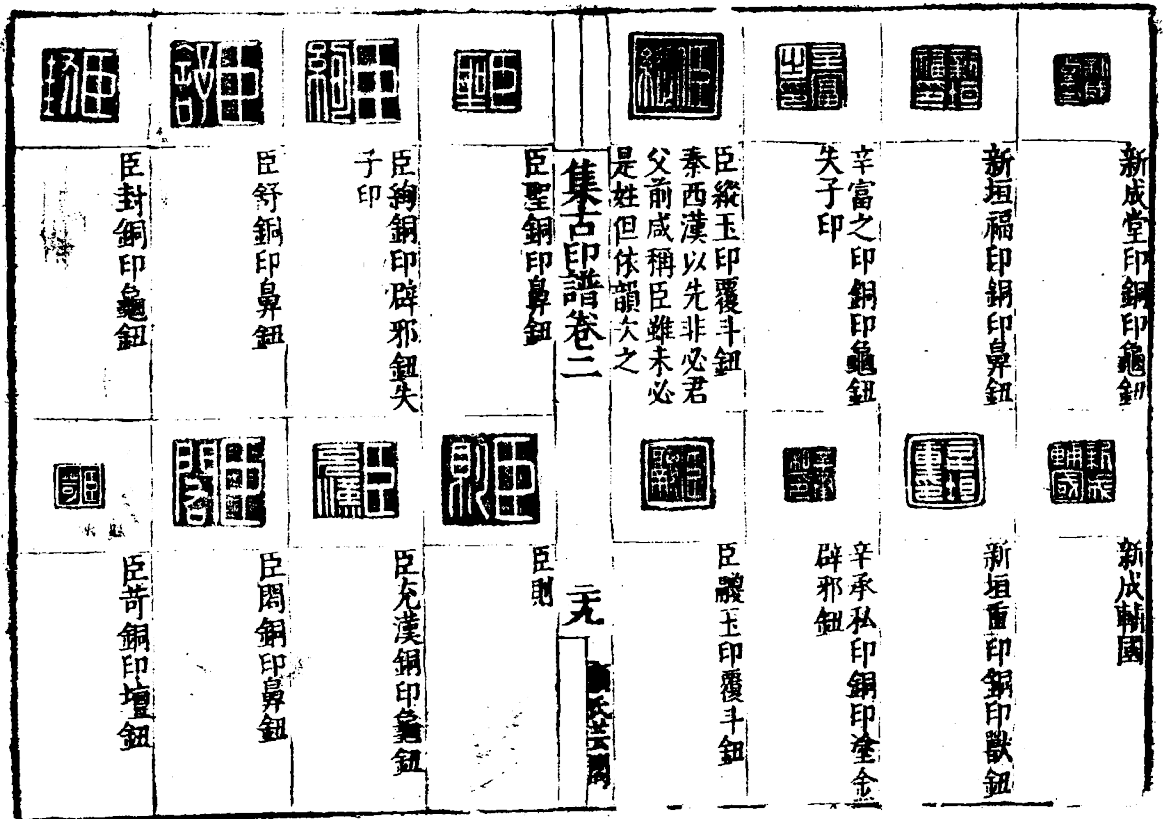 新成堂印銅印龜鈕
新成輔國
新垣福印銅印鼻鈕
新垣重印銅印獸鈕
辛富之印銅印龜鈕
失子印
辛承私印銅印塗金
辟邪鈕
臣縱玉印覆斗鈕
秦西漢以先非必君
父前咸稱臣雖未必
是姓但依韻次之
臣玉印覆斗鈕
集古印譜卷二
二九
氏芸閣
臣聖銅印鼻鈕
臣則
臣絢銅印辟邪鈕失
子印
臣充漢銅印龜鈕
臣舒銅印鼻鈕
臣閎銅印鼻鈕
臣封銅印龜鈕
臣苛銅印壇鈕